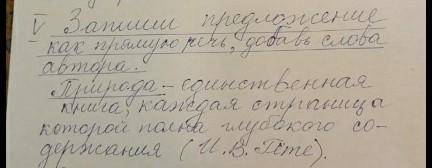 V Запиши предложение
как прямую речь, добавь слова
автора.
Природа – единственная
книга, каждая страница
которой полна глубокого со-
держания (И. В. Гёте).